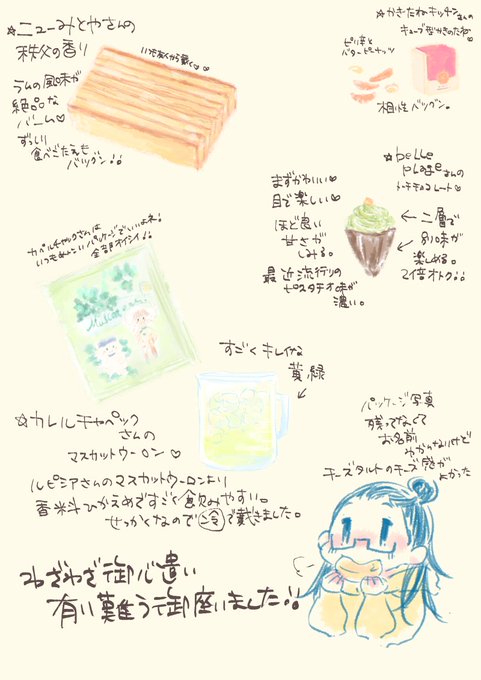 ☆ニューみとやさんの
秩父の香り
いただくから戴く♡
ラムの風味が
絶品な
バーム♡
ずっしり
食べごたえも
バツグン!!
☆かきたねキッチンさんの
キューブ型かきのたね♡
ピリ辛と
バターピーナッツ
相性バツグン。
☆belle
plageさんの
トーチチョコレート♡
まずかわいい
目で楽しい♡
ほど良い
甘さが
しみる。
最近流行りの
ピスタチオ味が
濃い。
←二層で
別味が
楽しめる。
2倍オトク!!
カレルチャペックさんは
いつもめんこいパッケージでいいよね!
全部オイシイ!!
Muscat
すごくキレイな
黄緑
☆カレルチャペック
さんの
マスカットウーロン♡
ルピシアさんのマスカットウーロンより
香料ひかえめですごく飲みやすい。
せっかくなので冷で戴きました。
パッケージ写真
残ってなくて
お名前
わからないけど
チーズタルトのチーズ感が
よかった
わざわざ御心遣い
有り難う御座いました!!